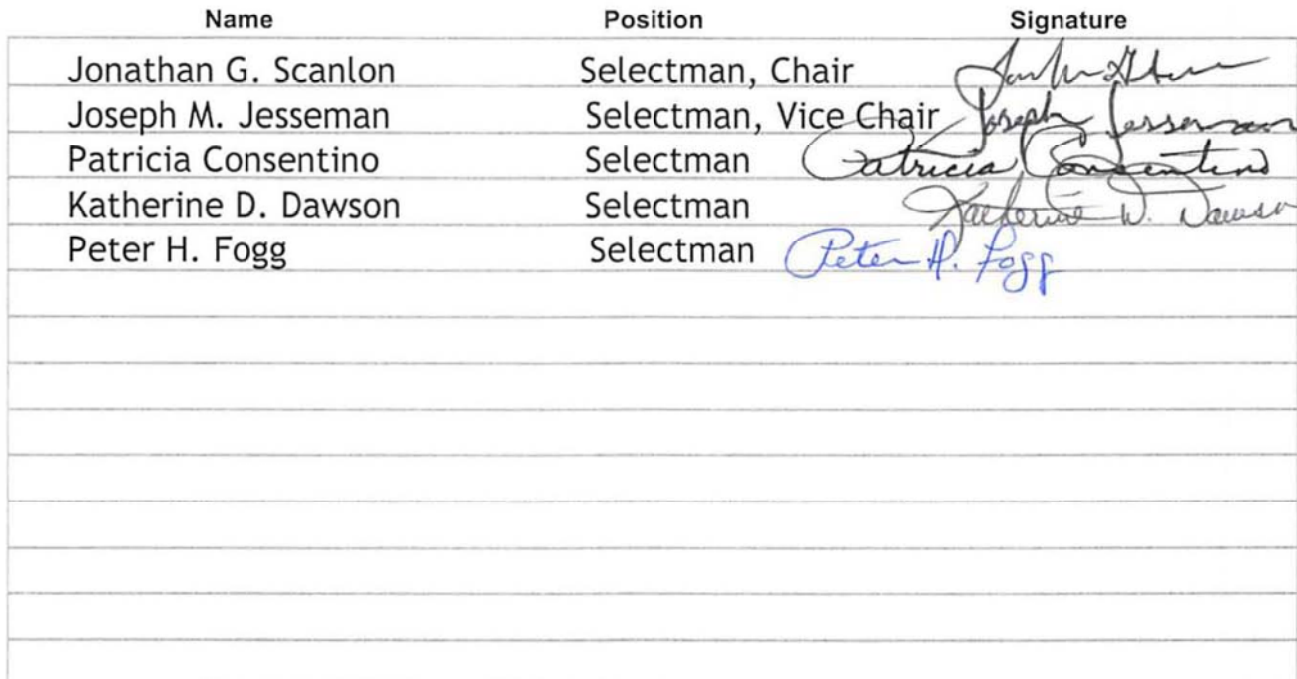 Name Position Signature
Jonathan G. Scanlon Selectman, Chair
Joseph M. Jesseman Selectman, Vice Chair Joseph Jesseman
Patricia Consentino Selectman Patricia Consentino
Katherine D. Dawson Selectman Katherine D. Dawson
Peter H. Fogg Selectman Peter H. Fogg